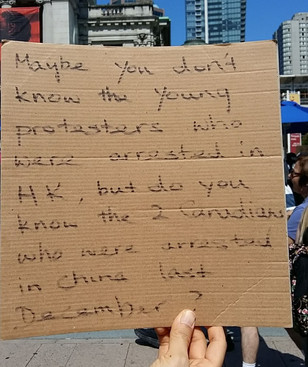 Maybe you don't
know the young
protesters who
were arrested in
HK, but do you
know the 2 Canadians
who were arrested
in China last
December?